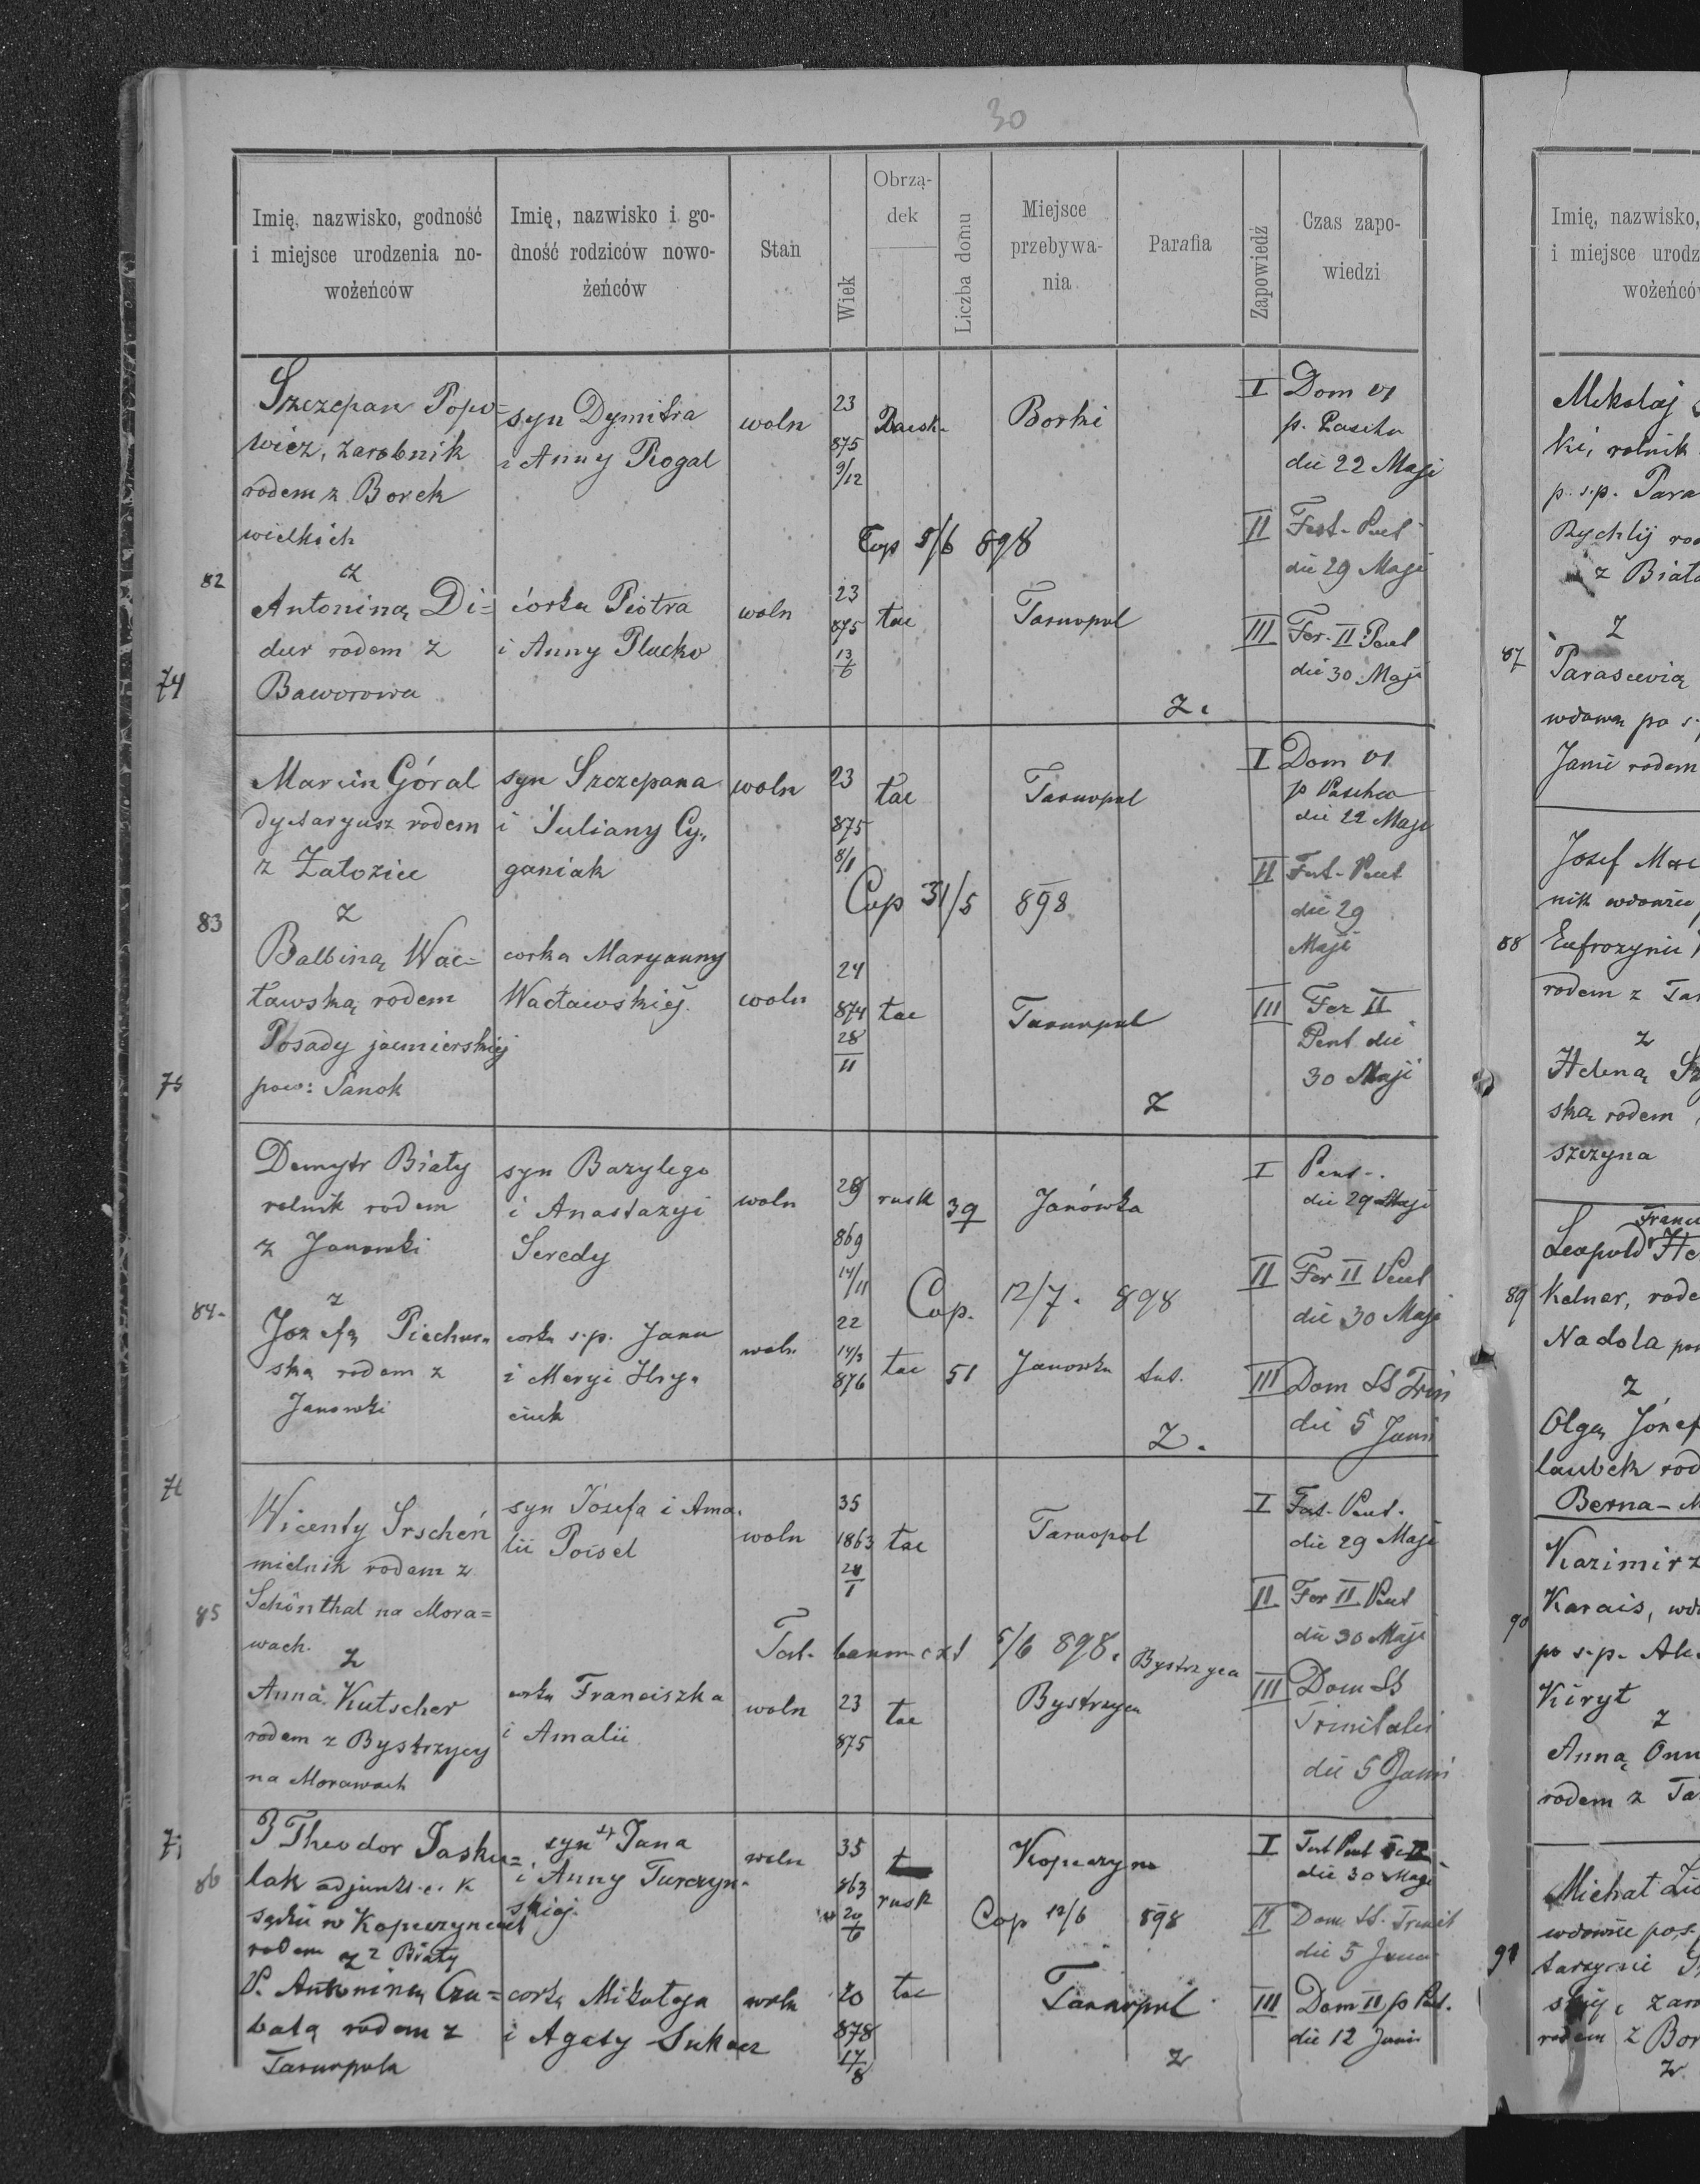 30
Imię, nazwisko, godność i miejsce urodzenia no-wożeńców
Imię, nazwisko i go-dność rodziców nowo-żeńców
Stan
Wiek
Obrzą-dek
Liczba domu
Miejsce przebywa-nia
Parafia
Zapowiedź
Czas zapo-wiedzi
82
74
Szczepan Popo=
wicz, zarobnik
rodem z Borek
wielkich
z
Antoniną Di=
dur rodem z
Baworowa
syn Dymitra
i Anny Rogal
córka Piotra
i Anny Plucko
woln
woln
23
875
9/12
23
875
13/6
łac
Borki
Cop 5/6 898
Tarnopol
Z.
I Dom VI
p. Pascha
die 22 Maji
II Fest. Pent
die 29 Maji
III Fer. II Pent
die 30 Maji
83
75
Marcin Góral
dyetaryusz rodem
z Załoziec
z
Balbiną Wac=
ławską rodem
Posady jaćmierskiej
pow: Sanok
syn Szczepana
i Juliany Cy-
ganiak
corka Maryanny
Wacławskiej.
woln
woln
23
875
8/11
24
874
28/11
łac
łac
Tarnopol
Cop 31/5 898
Tarnopol
Z
I Dom VI
p Pascha
die 22 Maji
II Fest. Pent
die 29
Maji
III Fer II
Pent die
30 Maji
84.
76
Demytr Biały
rolnik rodem
z Janowki
z
Jozefą Piechur-
ską rodem z
Janowki
syn Bazylego
i Anastazyi
Seredy
corka s.p. Jana
i Maryi Hry-
ciuk
woln
woln
29
869
14/11
22
14/3
876
rusk
łac
39
51
Janówka
Cop. 12/7. 898
Janowka
tut.
Z.
I Pent.
die 29 Maji
II Fer II Pent
die 30 Maji
III Dom SS Trin
die 5 Junii
85
77
Wicenty Irscheń
mielnik rodem z
Schönthal na Mora=
wach.
z
Anna Kutscher
rodem z Bystrzycy
na Morawach
syn Józefa i Ama-
lii Poisel
corka Franciszka
i Amalii
woln
woln
35
1863
23
875
łac
łac
Tarnopol
5/6 898.
Bystrzyca
Bystrzyca
I Fest. Pent.
die 29 Maji
II Fer II Pent
die 30 Maji
III Dom SS
Trinitatis
die 5 Junii
86
Theodor Jasku=
lak adjunkt c. k
sądu w Kopeczyncach
rodem z Biały
z
P. Antoniną Cza=
bałą rodem z
Tarnopola
syn Jana
i Anny Turczyn-
skiej.
corką Mikołaja
i Agaty Sukacz
woln
woln
35
863
20/6
20
878
17/8
rusk
łac
Kopeczynce
Cop 12/6 898
Tarnopol
Z
I
die 30 Maji
II Dom SS. Trinit
die 5 Junii
III Dom II p Pent.
die 12 Junii
Imię, nazwisko,
i miejsce urodz
wożeńców
Mikolaj
ki, rolnik
p. s.p. Para
Rychlij
z Biała
z
87
Parascevią
wdową po s.
Janie rodem
Josef
nik wdowiec
88
Eufrozynie
rodem z Tar
z
Heleną
ską rodem
szczyna
Leopold
89
Kelner, rode
Nadola
z
Olgą Józef
laubek rod
Berna - M
Kazimirz
Karais, wd
90
po s.p. Ale
Kiryt
z
Anną
rodem z Ta
Michał
wdowiec po s.
91
rodem z Bor
z